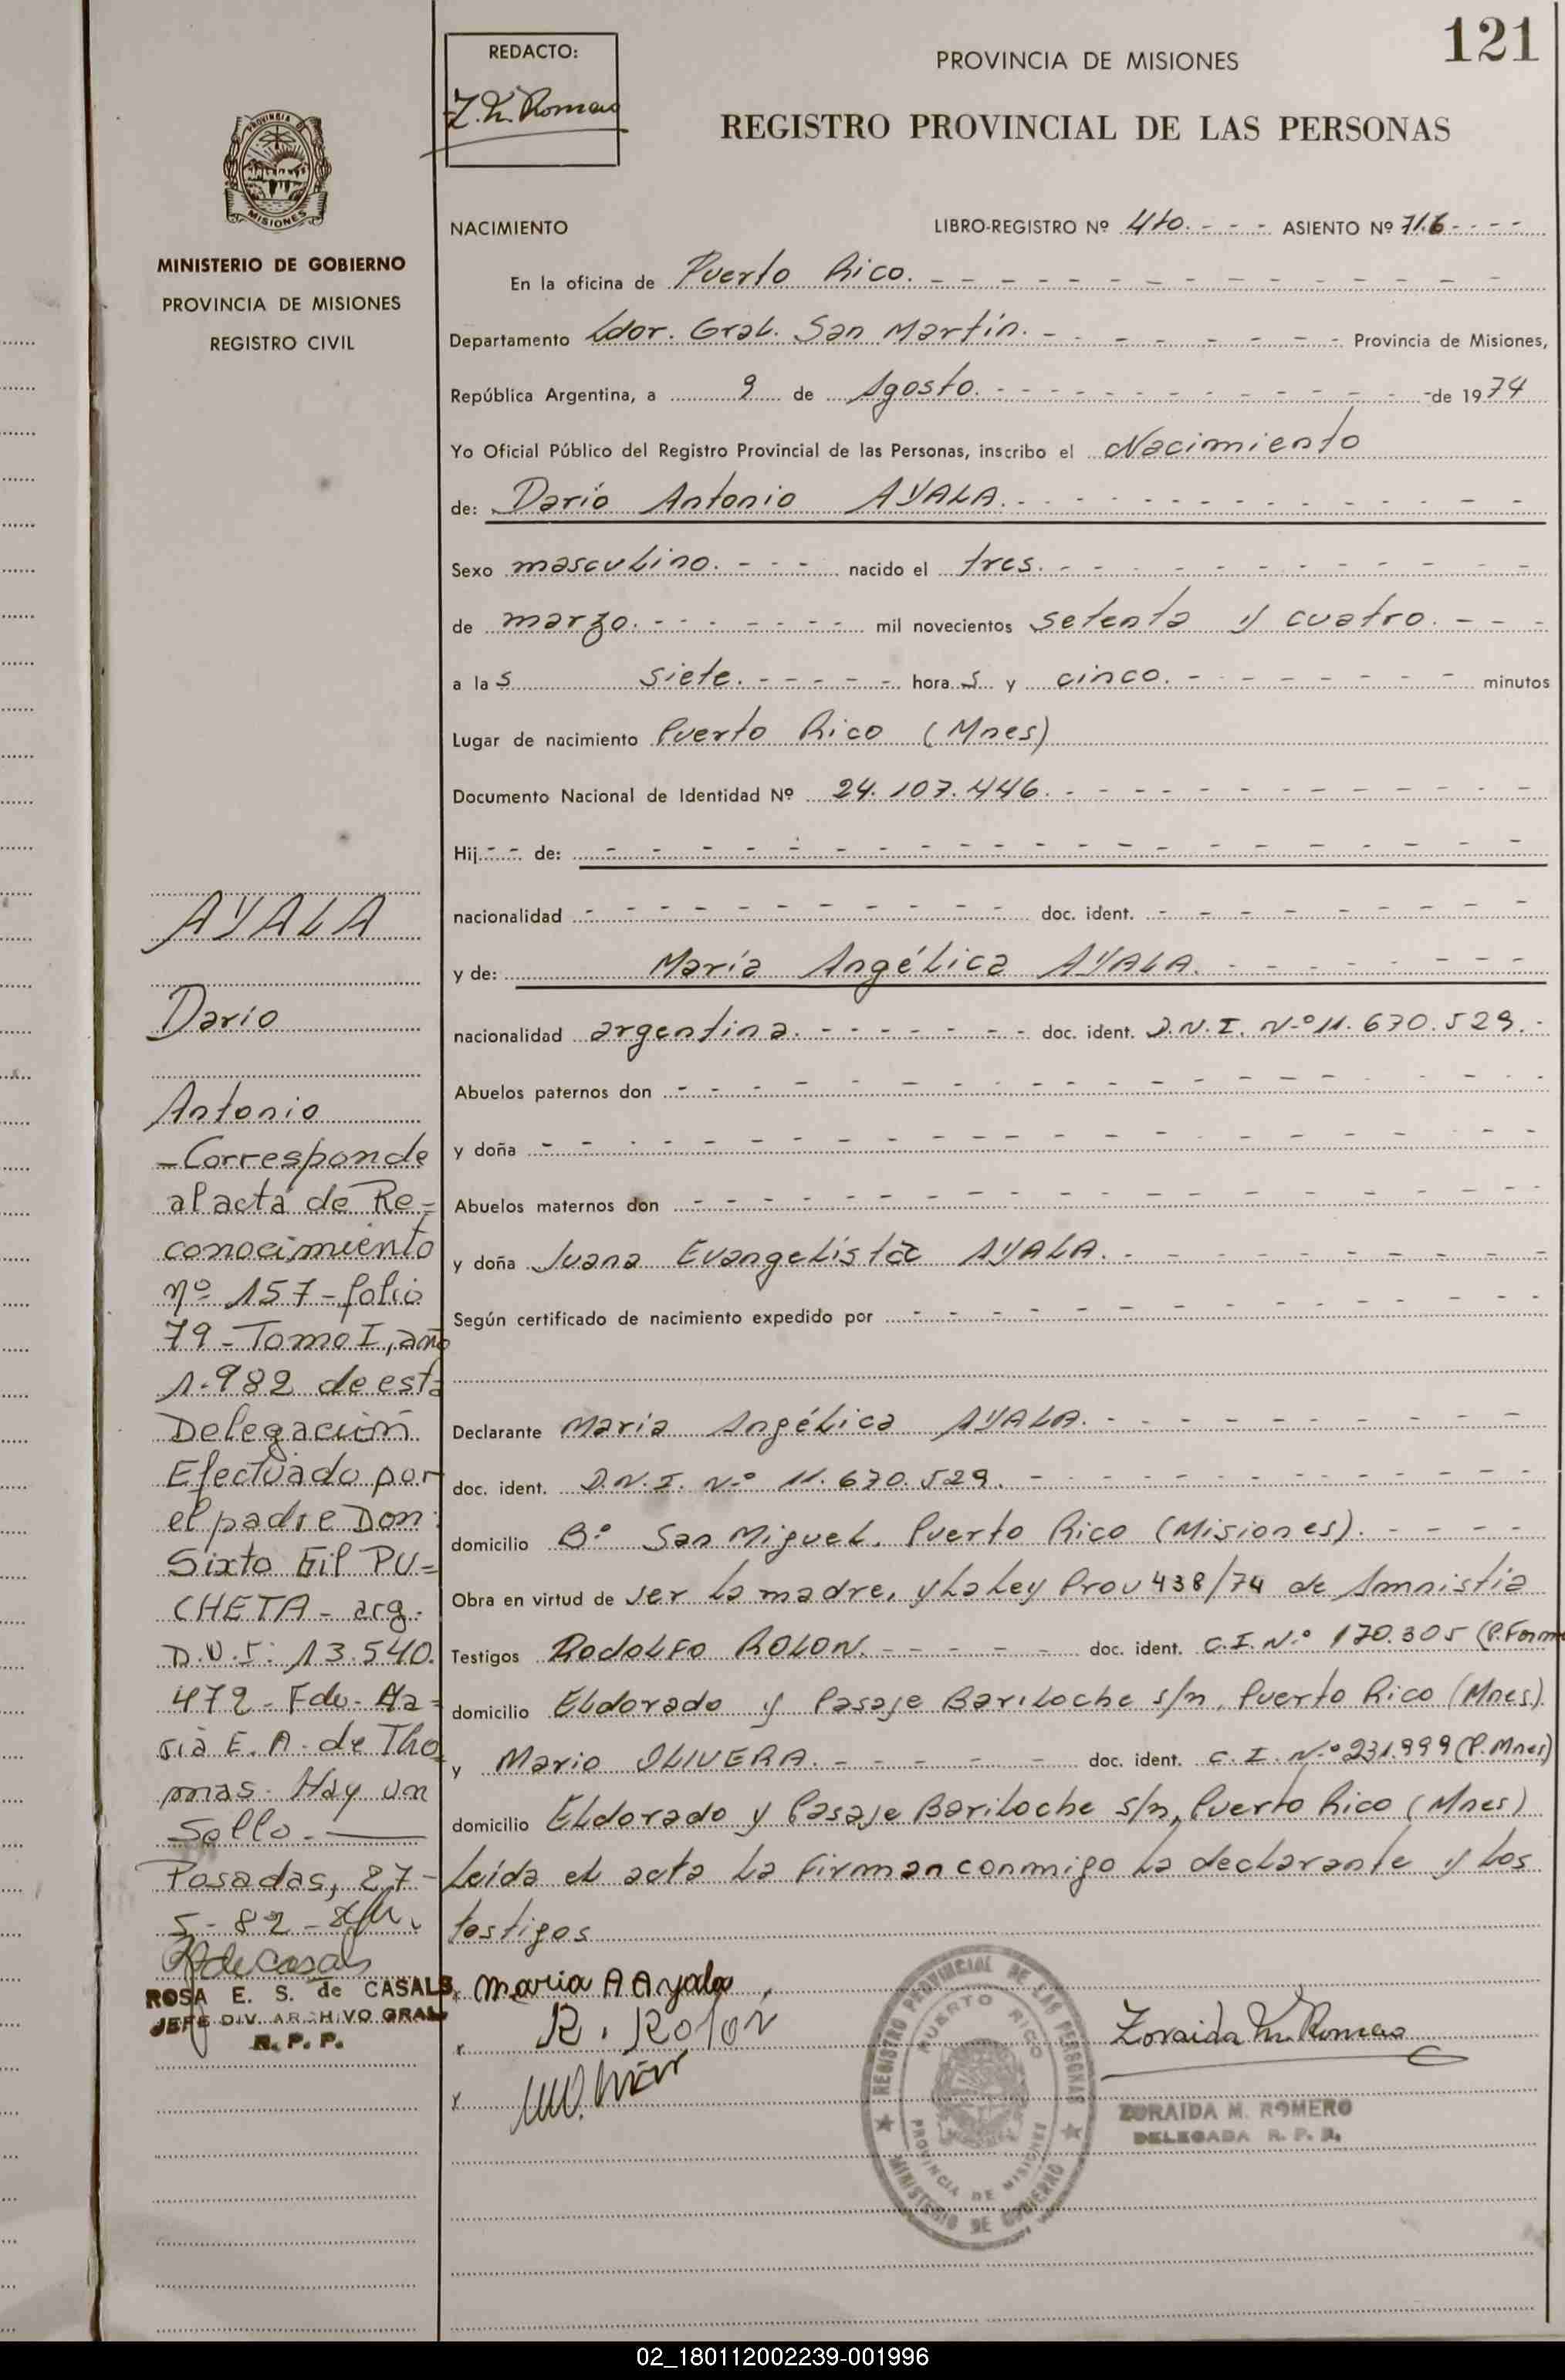 121
REDACTO:
Z. M. Romero
PROVINCIA DE MISIONES
REGISTRO PROVINCIAL DE LAS PERSONAS
PROVINCIA DE
MISIONES
MINISTERIO DE GOBIERNO
PROVINCIA DE MISIONES
REGISTRO CIVIL
NACIMIENTO LIBRO-REGISTRO Nº 410. - - - ASIENTO Nº 716 - - - -
En la oficina de Puerto Rico.
Departamento Ldor. Gral. San Martín. - Provincia de Misiones,
República Argentina, a 9 de Agosto. de 1974
Yo Oficial Público del Registro Provincial de las Personas, inscribo el Nacimiento
de: Darío Antonio AYALA.
Sexo masculino. - - - nacido el tres.
de marzo. - - - mil novecientos setenta y cuatro. - - -
a las siete. - - - horas y cinco. - - - minutos
Lugar de nacimiento Puerto Rico (Mnes)
Documento Nacional de Identidad Nº 24.107.446.
Hij - - de: - - -
nacionalidad - - - doc. ident. - - -
y de: María Angélica AYALA.
nacionalidad argentina. - - - doc. ident. D.N.I. Nº 11.670.529. -
Abuelos paternos don - - -
y doña - - -
Abuelos maternos don - - -
y doña Juana Evangelista AYALA.
Según certificado de nacimiento expedido por - - -
Declarante María Angélica AYALA.
doc. ident. D.N.I. Nº 11.670.529.
domicilio Bº San Miguel. Puerto Rico (Misiones). - - - -
Obra en virtud de ser la madre, y la Ley Prov 438/74 de Amnistía
Testigos RODOLFO ROLON. - - - doc. ident. C.I. Nº 170.305 (P. Form
domicilio Eldorado y Pasaje Bariloche s/n, Puerto Rico (Mnes).
y Mario OLIVERA. - - - doc. ident. C.I. Nº 231.999 (P. Mnes)
domicilio Eldorado y Pasaje Bariloche s/n, Puerto Rico (Mnes)
Leída el acta la firman conmigo la declarante y los
testigos
maria A Ayala
R. Rolón
Zoraida M. Romero
ZORAIDA M. ROMERO
DELEGADA R. P. P.
REGISTRO PROVINCIAL DE LAS PERSONAS
PUERTO RICO
PROVINCIA DE MISIONES
MINISTERIO DE GOBIERNO
AYALA
Darío
Antonio
-Corresponde
al acta de Re=
conocimiento
nº 157-folio
79-Tomo I, año
1.982 de esta
Delegación
Efectuado por
el padre Don:
Sixto Gil PU=
CHETA - arg.
D.N.I: 13.540.
472 - Fdo- Ma=
ría E. A. de Tho
mas. Hay un
Sello.
Posadas, 27-
5-82-
R de Casals
ROSA E. S. de CASALS
JEFE DIV. ARCHIVO GRAL
R. P. P.
02_180112002239-001996